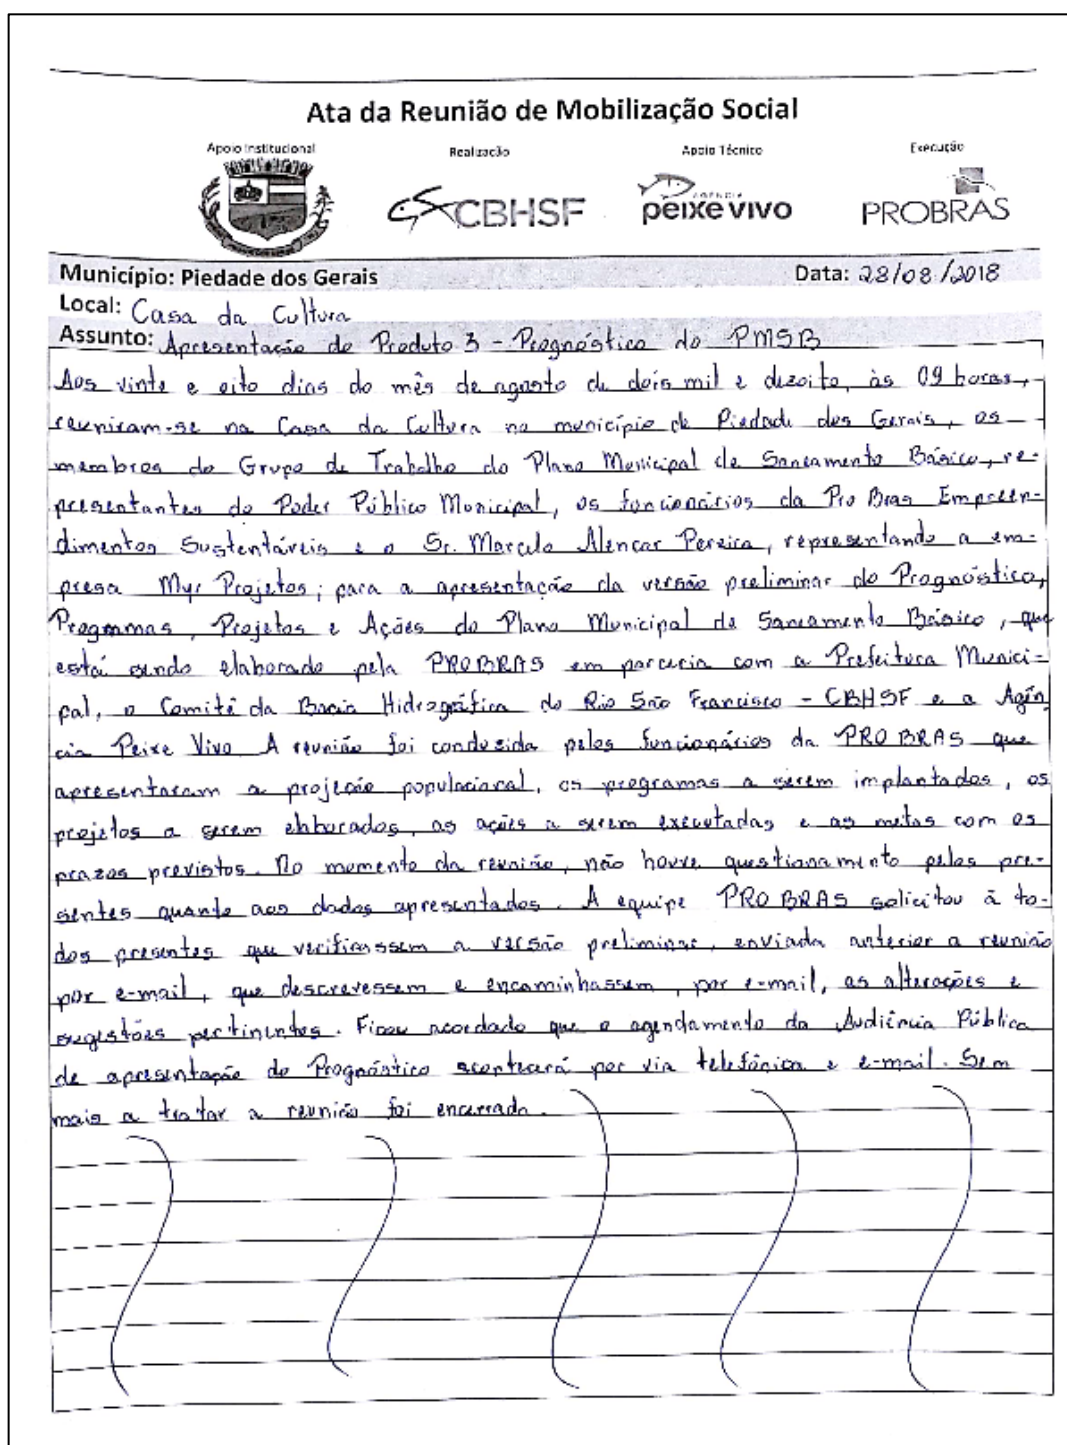 Ata da Reunião de Mobilização Social
Apoio Institucional Realização Apoio Técnico Execução
CBHSF AGÊNCIA peixe vivo PROBRAS
Município: Piedade dos Gerais Data: 28/08/2018
Local: Casa da Cultura
Assunto: Apresentação do Produto 3 - Prognóstico do PMSB
Aos vinte e oito dias do mês de agosto de dois mil e dezoito, às 09 horas,
reuniram-se na Casa da Cultura no município de Piedade dos Gerais, os
membros do Grupo de Trabalho do Plano Municipal de Saneamento Básico, re-
presentantes do Poder Público Municipal, os funcionários da Pro Bras Empreen-
dimentos Sustentáveis e o Sr. Marcelo Alencar Pereira, representando a em-
presa Myr Projetos; para a apresentação da versão preliminar do Prognóstico,
Programas, Projetos e Ações do Plano Municipal de Saneamento Básico, que
está sendo elaborado pela PROBRAS em parceria com a Prefeitura Munici-
pal, o Comitê da Bacia Hidrográfica do Rio São Francisco - CBHSF e a Agên
cia Peixe Vivo. A reunião foi conduzida pelos funcionários da PROBRAS que
apresentaram a projeção populacional, os programas a serem implantados, os
projetos a serem elaborados, as ações a serem executadas e as metas com os
prazos previstos. No momento da reunião, não houve questionamento pelos pre-
sentes quanto aos dados apresentados. A equipe PROBRAS solicitou à to-
dos presentes que verificassem a versão preliminar, enviada anterior a reunião
por e-mail, que descrevessem e encaminhassem, por e-mail, as alterações e
sugestões pertinentes. Ficou acordado que o agendamento da Audiência Pública
de apresentação do Prognóstico acontecerá por via telefônica e e-mail. Sem
mais a tratar a reunião foi encerrada.